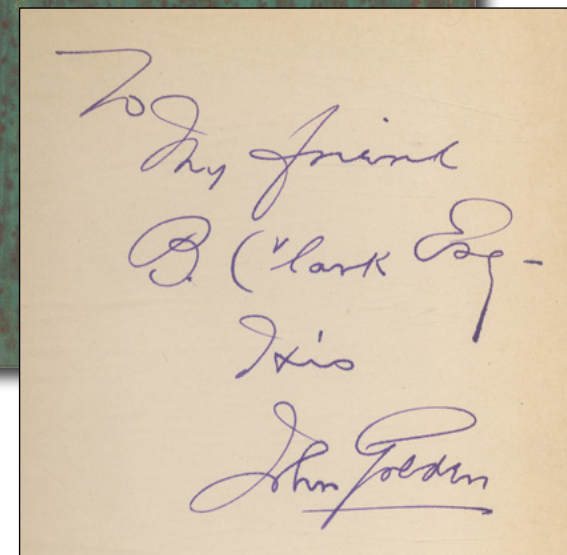 To
My friend
B. Clark Esq -
This
John Golden